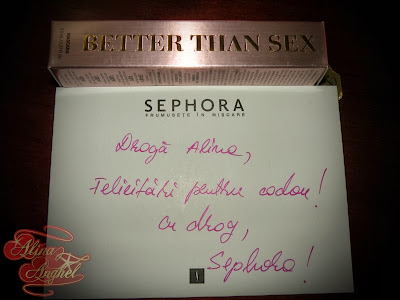 BETTER THAN SEX
SEPHORA
FRUMUSEȚE ÎN MIȘCARE
Dragă Alina,
Felicitări pentru cadou!
cu drag,
Sephora!
Alina
Anghel